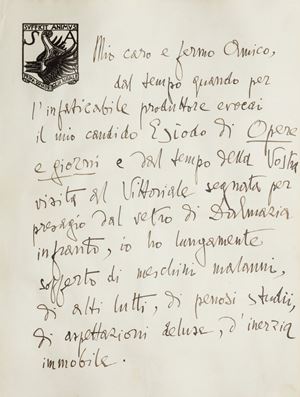 SVFFICIT ANIMVS
S A
Mio caro e fermo Amico,
dal tempo quando per
l'infaticabile produttore evocai
il mio candido Esiodo di Opere
e giorni e dal tempo della Vostra
visita al Vittoriale segnata per
presagio dal vetro di Dalmazia
infranto, io ho lungamente
sofferto di meschini malanni,
di alti lutti, di penosi studii,
di aspettazioni deluse, d'inerzia
immobile.